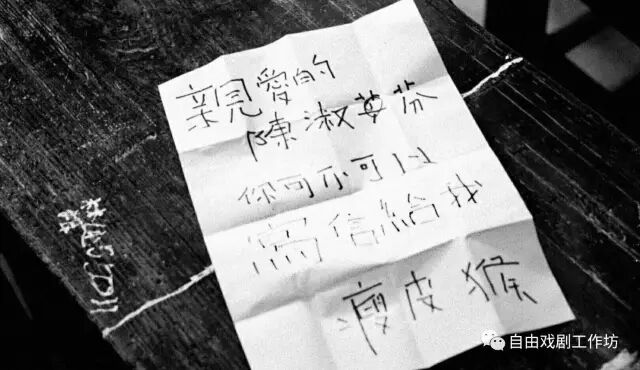 親愛的
陳淑英芬
你可不可以
寫信給我
瘦皮猴
自由戏剧工作坊